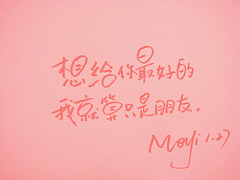 想给你最好的
我就算只是朋友。
Moyi 1.27